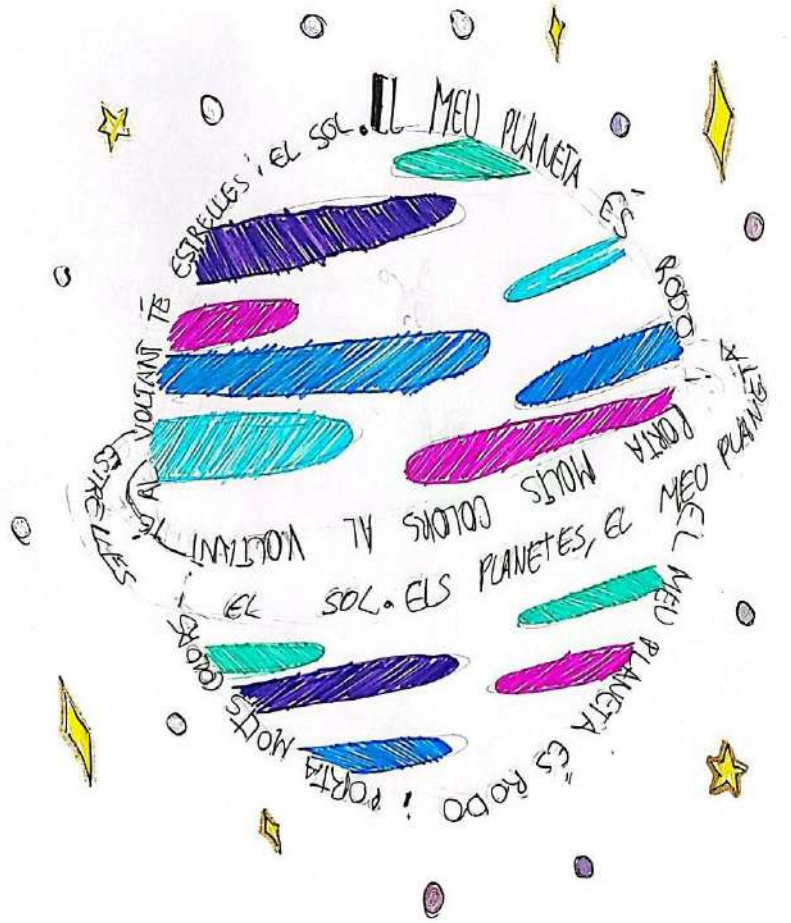 EL MEU PLANETA ÉS RODO I
PORTA MOLTS COLORS AL VOLTANT TÉ
ESTRELLES
EL SOL. ELS PLANETES, EL MEU PLANETA
EL MEU PLANETA ÉS RODO I PORTA MOLTS COLORS I
AL VOLTANT TÉ ESTRELLES I EL SOL.